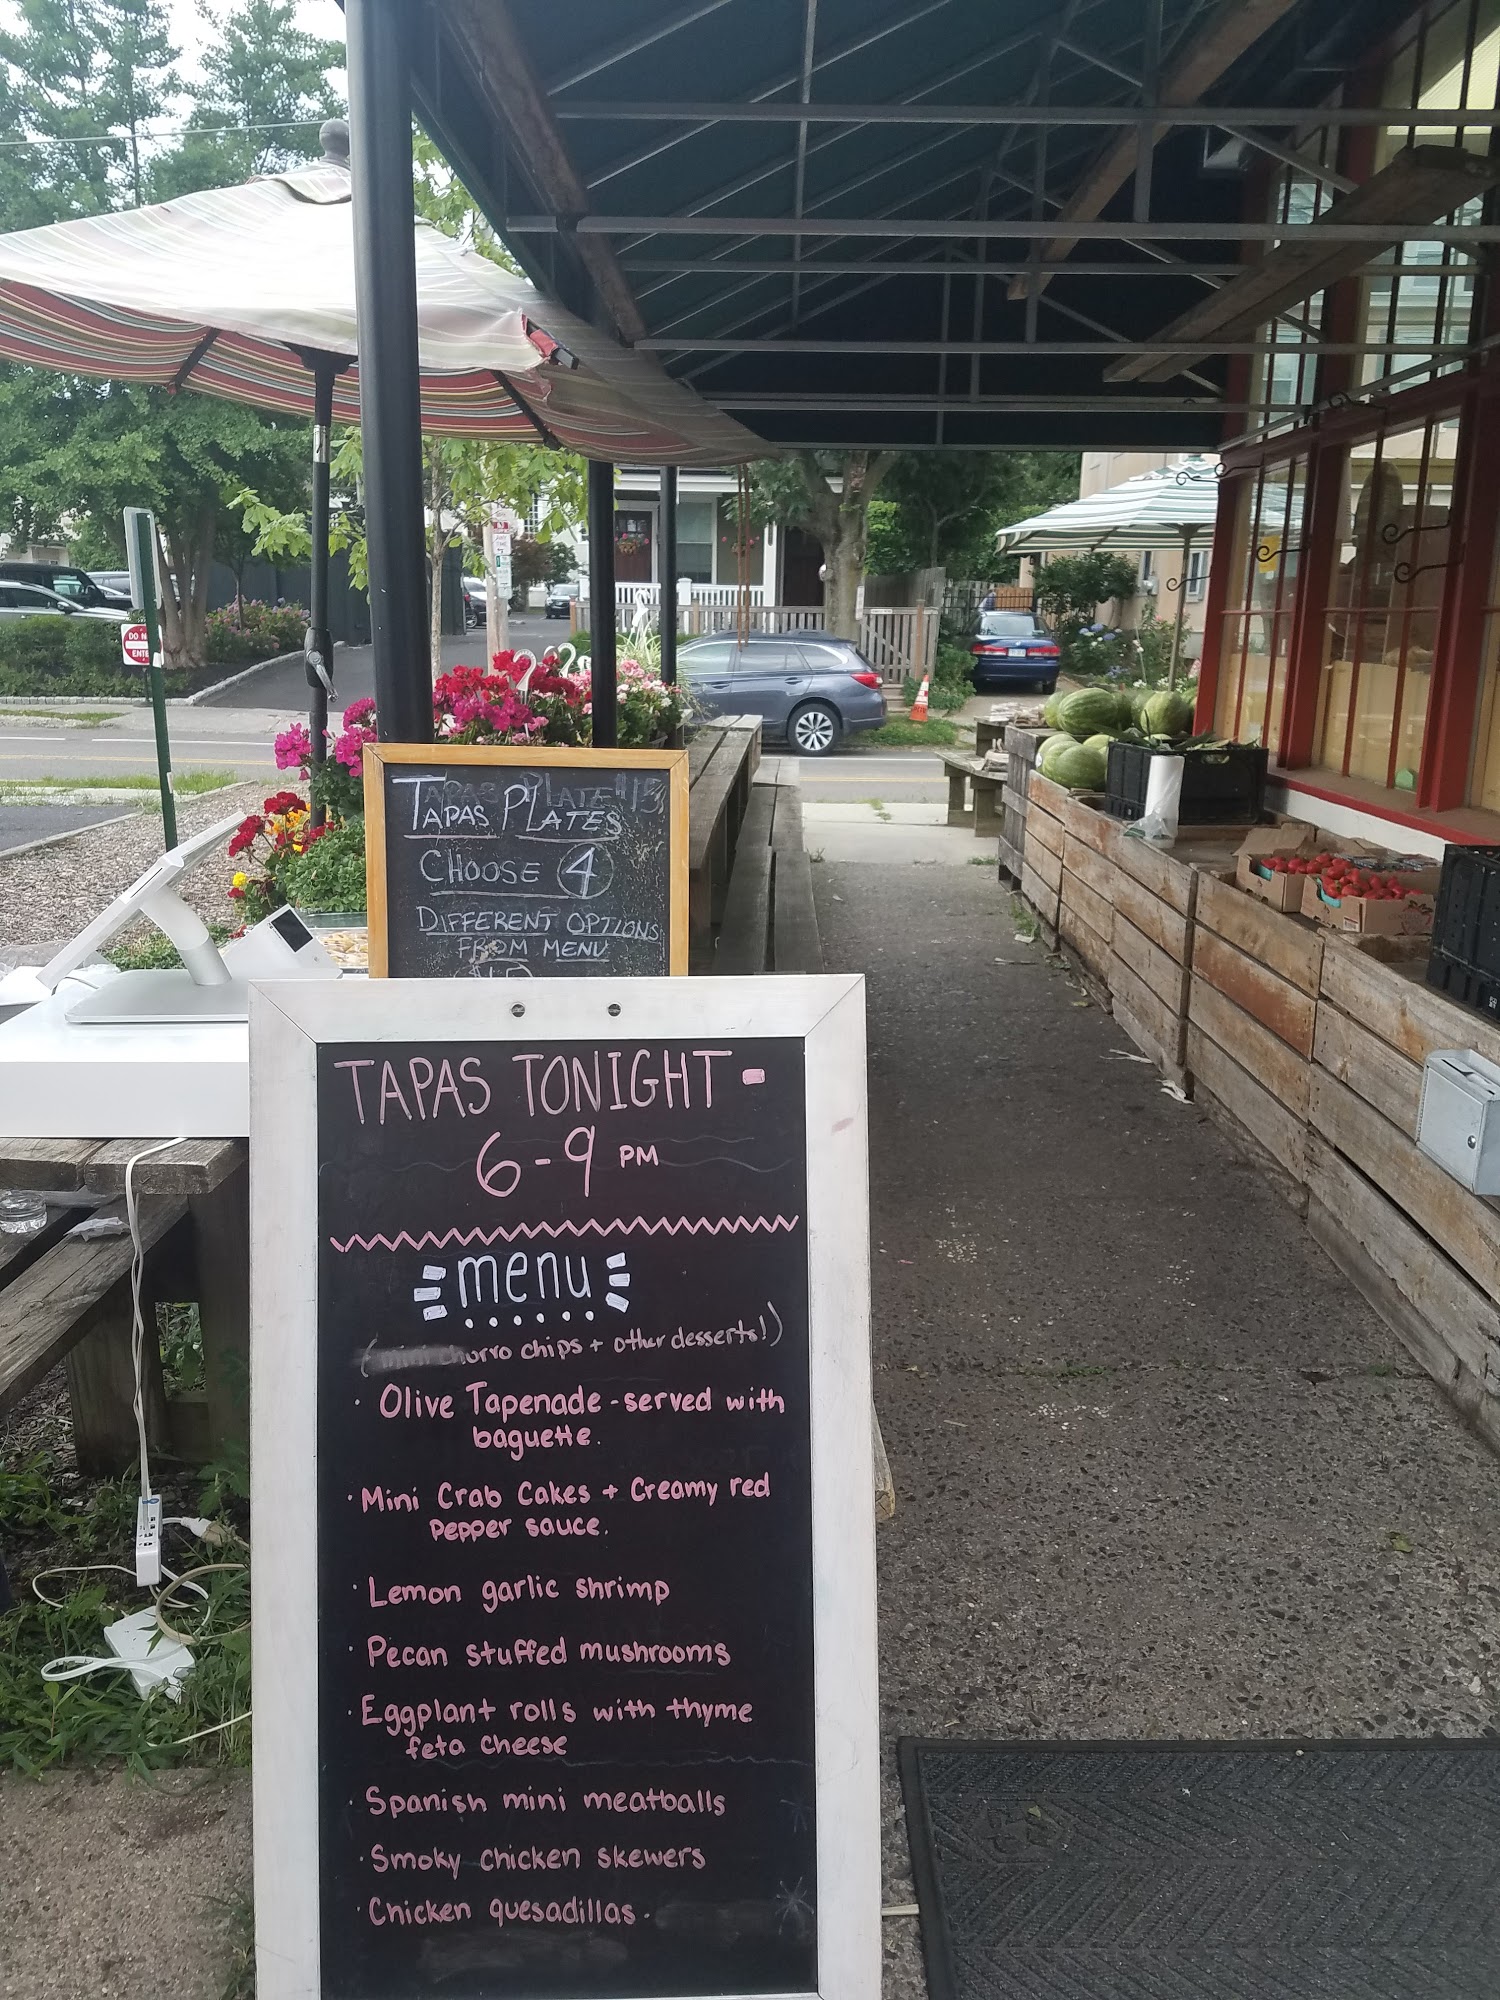 DO NOT
ENTER
TAPAS PLATE $15
TAPAS PLATES
CHOOSE 4
DIFFERENT OPTIONS
FROM MENU
TAPAS TONIGHT -
6-9 PM
menu
(mini churro chips + other desserts!)
· Olive Tapenade - served with
baguette.
· Mini Crab Cakes + Creamy red
pepper sauce.
· Lemon garlic shrimp
· Pecan stuffed mushrooms
· Eggplant rolls with thyme
feta cheese
· Spanish mini meatballs
· Smoky chicken skewers
· Chicken quesadillas.